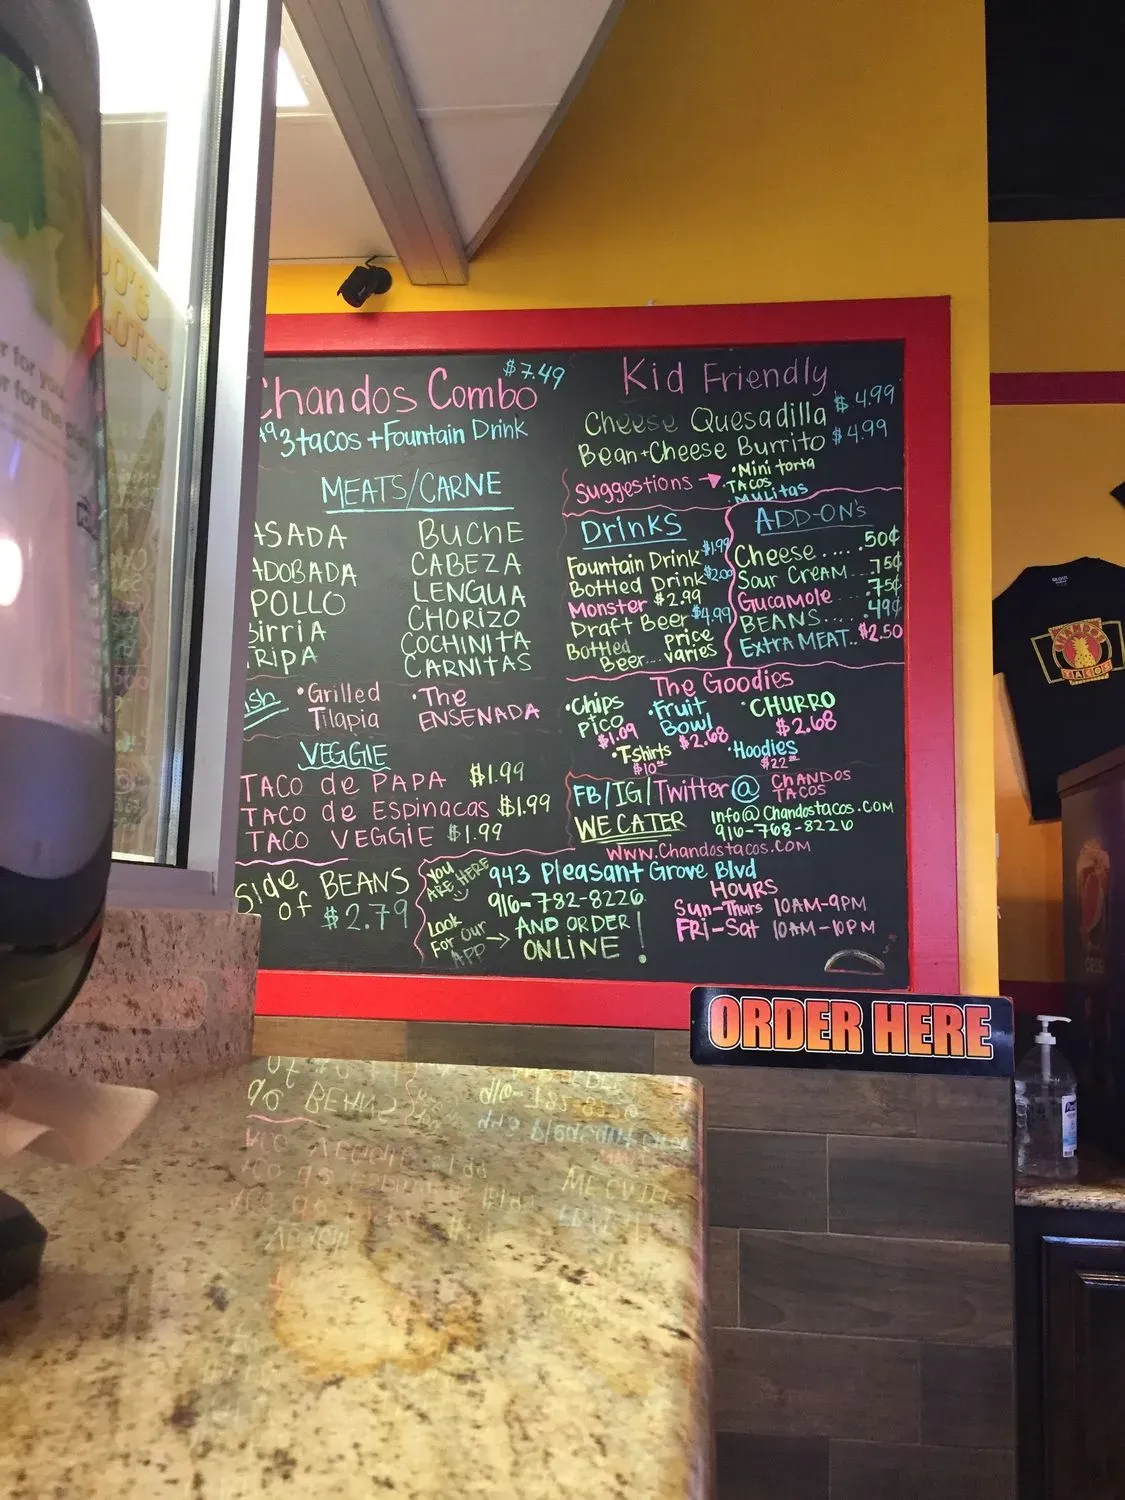 Chandos Combo $7.49
3 tacos + Fountain Drink
MEATS/CARNE
ASADA
ADOBADA
POLLO
BIRRIA
TRIPA
BUCHE
CABEZA
LENGUA
CHORIZO
COCHINITA
CARNITAS
• Grilled Tilapia
• The ENSENADA
VEGGIE
TACO de PAPA $1.99
TACO de Espinacas $1.99
TACO VEGGIE $1.99
Side of BEANS
$2.79
Kid Friendly
Cheese Quesadilla $4.99
Bean + Cheese Burrito $4.99
Suggestions → • Mini torta
TACOS
Mulitas
Drinks
Fountain Drink $1.99
Bottled Drink $2.00
Monster $2.99
Draft Beer $4.99
Bottled Beer... price varies
ADD-ON's
Cheese .... .50¢
Sour Cream .75¢
Gucamole .... .75¢
BEANS.... .49¢
Extra MEAT.. $2.50
The Goodies
• Chips Pico $1.09
• Fruit Bowl $2.68
• CHURRO $2.68
• T-Shirts $10
• Hoodies $22
FB/IG/Twitter @ CHANDOS TACOS
WE CATER
Info@Chandostacos.com
916-768-8226
www.Chandostacos.com
YOU ARE HERE
943 Pleasant Grove Blvd
916-782-8226
Look For our APP → AND ORDER ONLINE!
HOURS
Sun-Thurs 10AM-9PM
FRI-Sat 10AM-10PM
ORDER HERE
CHANDOS
TACOS